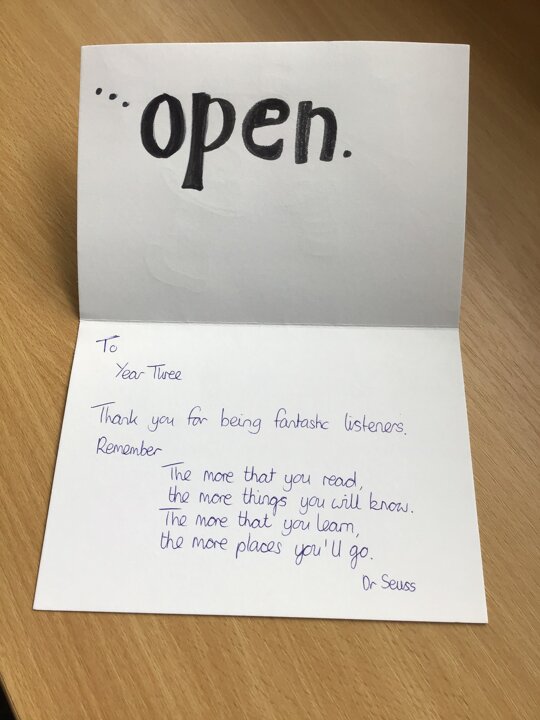 ...open.
To
Year Three
Thank you for being fantastic listeners.
Remember
The more that you read,
the more things you will know.
The more that you learn,
the more places you'll go.
Dr Seuss